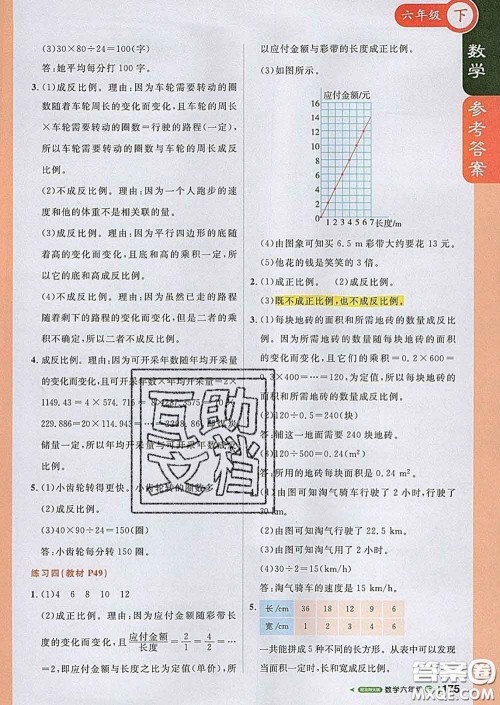 六年级 下
数学
参考答案
(3)30×80÷24=100(字)
答:她平均每分打 100 字。
3. (1)成反比例。理由:因为车轮需要转动的圈
数随着车轮周长的变化而变化,且车轮的周长
×车轮需要转动的圈数=行驶的路程(一定),
所以车轮需要转动的圈数与车轮的周长成反
比例。
(2)不成反比例。理由:因为一个人跑步的速
度和他的体重不是相关联的量。
(3)成反比例。理由:因为平行四边形的底随
着高的变化而变化,且底和高的乘积一定,所
以它的底和高成反比例。
(4)不成反比例。理由:因为虽然已走的路程
随着剩下的路程的变化而变化,但是二者的乘
积不确定,所以二者不成反比例。
4. 成反比例。理由:因为可开采年数随年均开采量
的变化而变化,且可开采年数×年均开采量=2×
1149.43=4×574.715=
229.886=20×114.943=
储量一定,所以年均开采量与可开采年数成反
比例。
5. (1)小齿轮转得更快。小齿轮转的圈数多
(2)成反比例。
(3)40×90÷24=150(圈)
答:小齿轮每分转 150 圈。
练习四(教材 P49)
1. (1)4 6 8 10 12
(2)成正比例。理由:因为应付金额随彩带长
度的变化而变化,且应付金额/长度=2/1=4/2=…
=2,即应付金额与长度之比为定值(单价),所
以应付金额与彩带的长度成正比例。
(3)如图所示。
应付金额/元
16
14
12
10
8
6
4
2
0 1 2 3 4 5 6 7 长度/m
(4)由图象可知买 6.5 m 彩带大约要花 13 元。
(5)他花的钱是笑笑的 3 倍。
2. (1)成正比例。 (2)成反比例。
(3)既不成正比例,也不成反比例。
3. (1)每块地砖的面积和所需地砖的数量成反比
例。因为所需地砖的数量随每块地砖的面积
的变化而变化,且它们的乘积=0.2×600=
0.3×400=…=120,为定值,所以每块地砖的
面积和所需地砖的数量成反比例。
(2)120÷0.5=240(块)
答:铺这一地面需要 240 块地砖。
答:所用的地砖每块面积是 0.24 m²。
(2)由图可知淘气行驶了 22.5 km。
(3)由图可知淘气用了 2 小时。
(4)30÷2=15(km/时)
答:淘气骑车的速度是 15 km/时。
5. 长/cm 36 18 12 9 6
宽/cm 1 2 3 4 6
一共能拼成 5 种不同的长方形。从表中可以发
现当面积一定时,长和宽成反比例。
数学六年级
175
互助
文档
答案圈